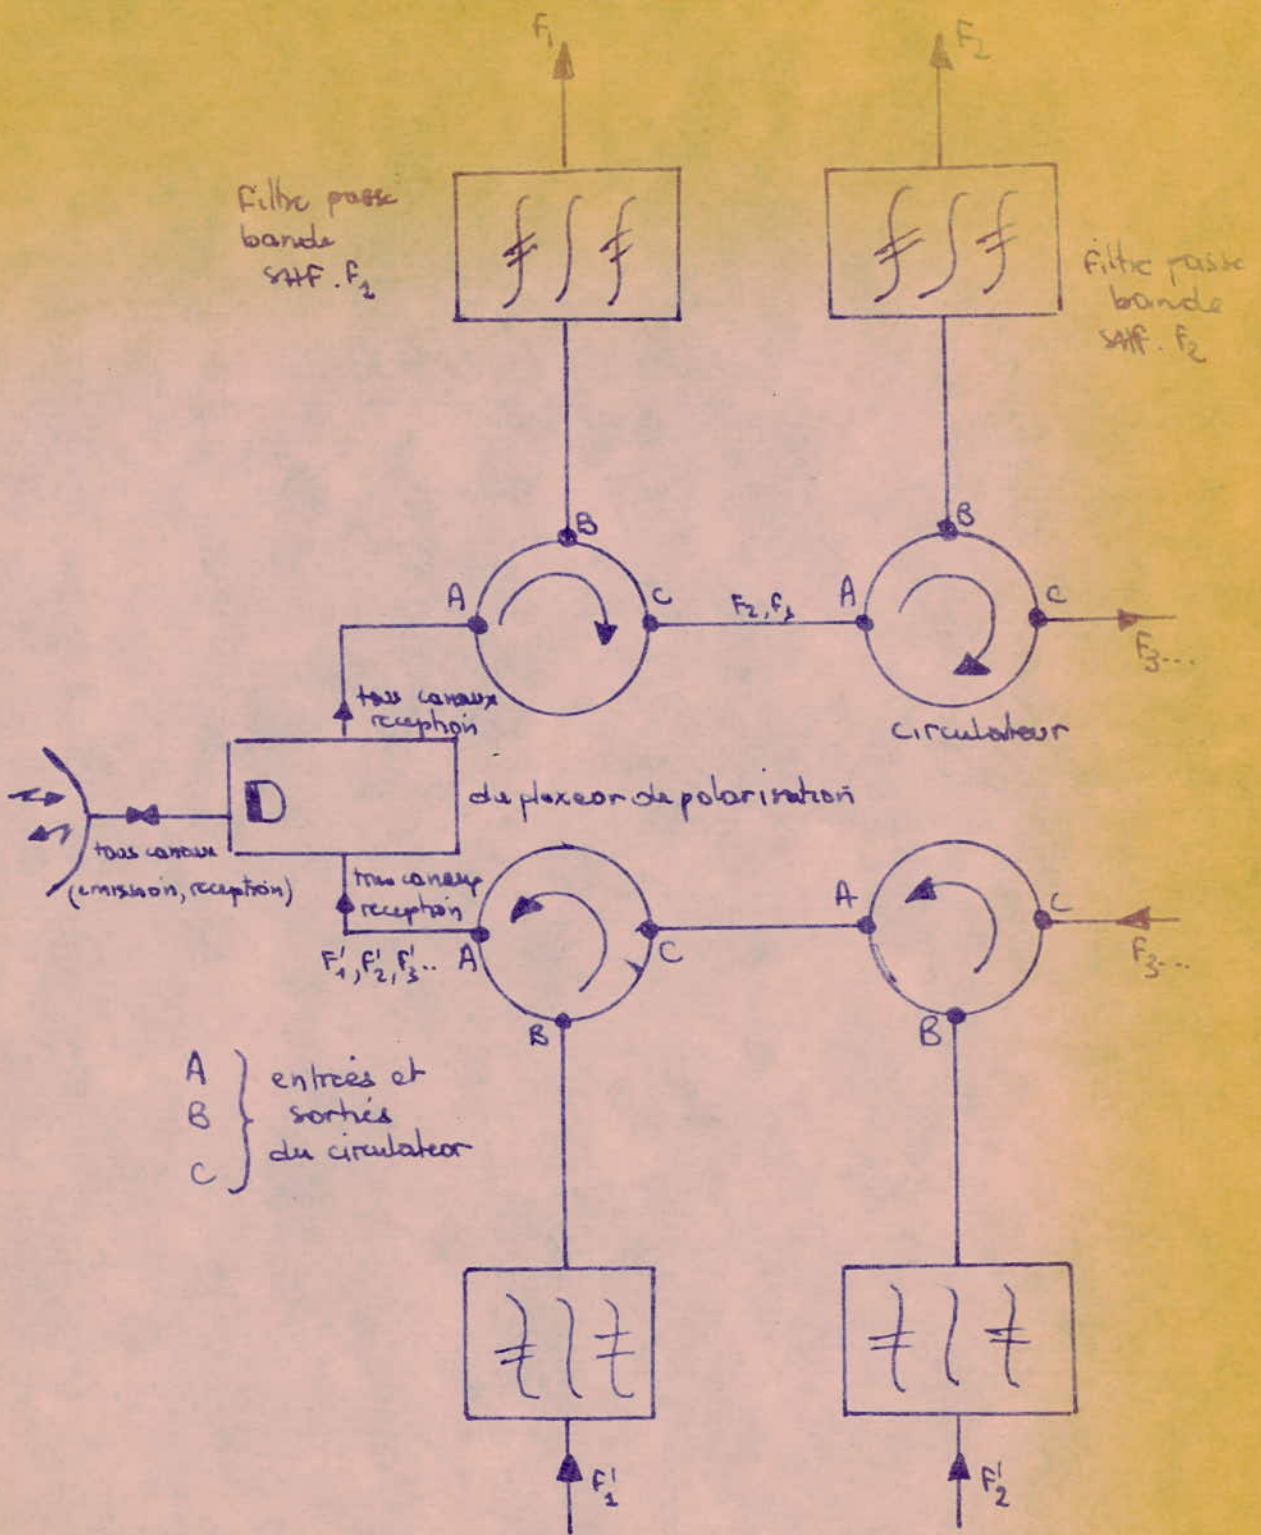 F1
F2
Filtre passe
bande
SHF. F1
Filtre passe
bande
SHF. F2
B
B
A
C
F2, F3
A
C
F3...
tous canaux
reception
circulateur
D
duplexeor de polarisation
tous canaux
(emission, reception)
tous canaux
reception
A
C
A
C
F'1, F'2, F'3..
F3...
B
B
A
B
C
entrées et
sortiés
du circulateor
F'1
F'2